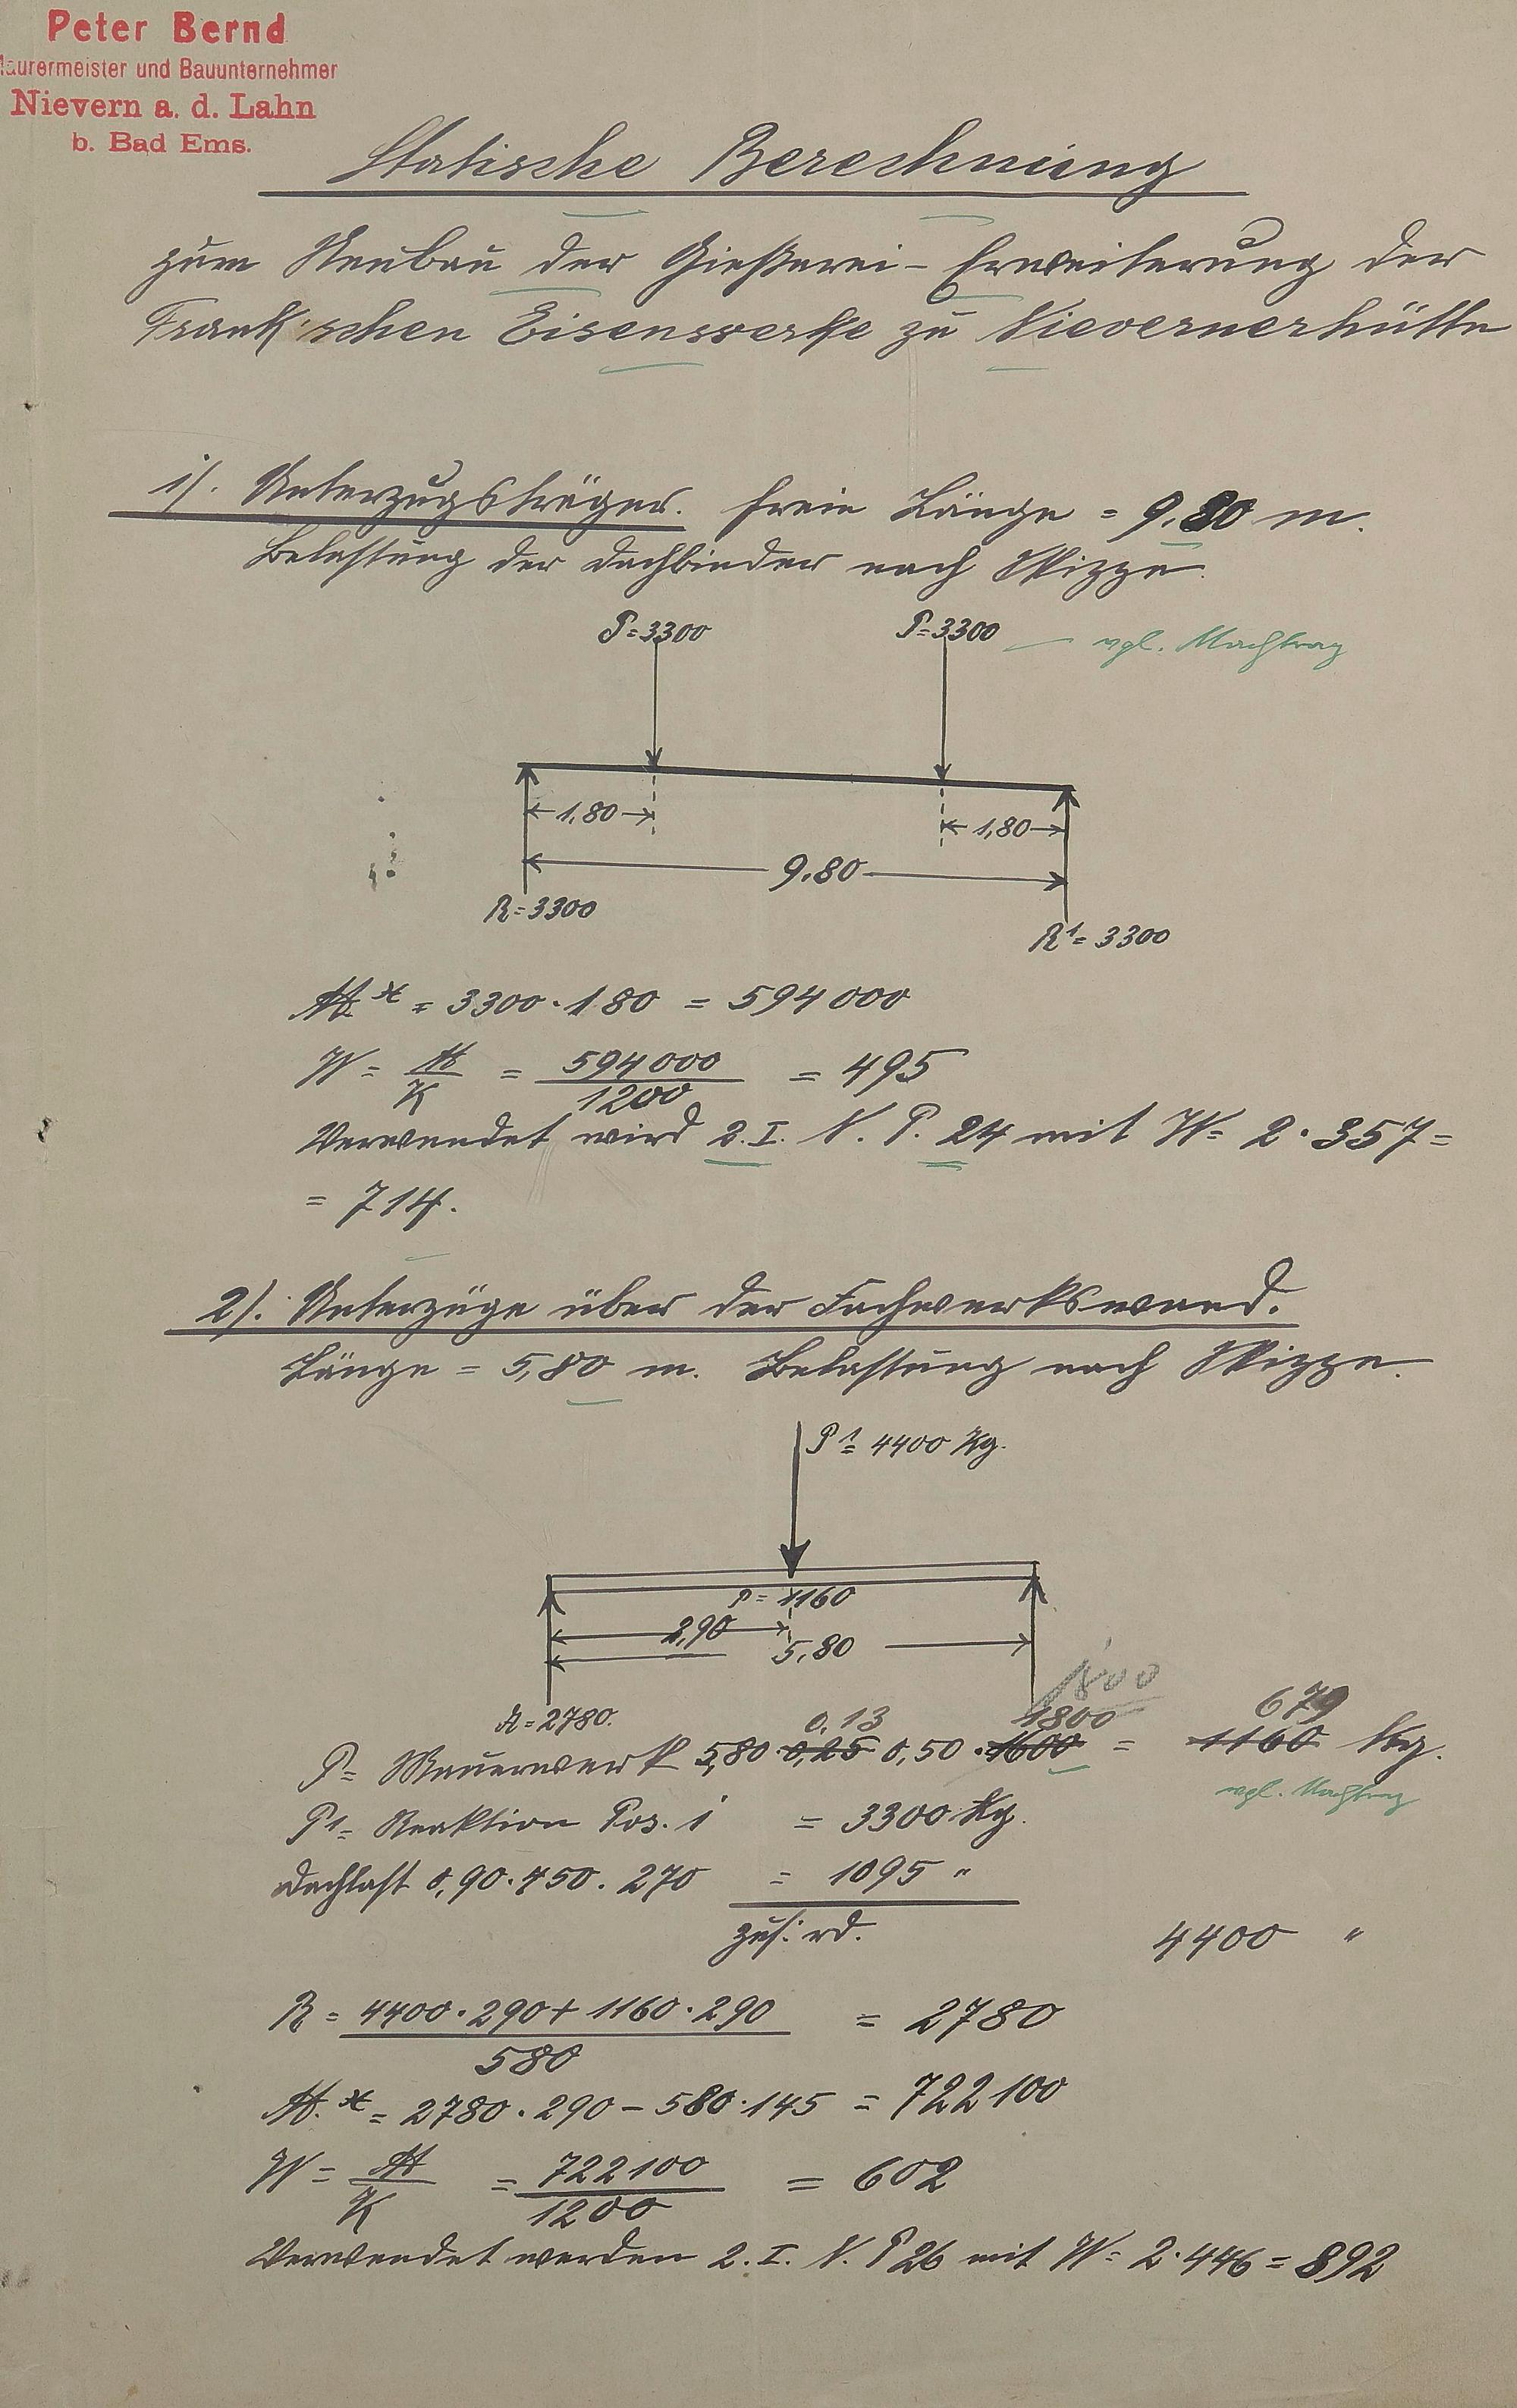 Peter Bernd
Maurermeister und Bauunternehmer
Nievern a. d. Lahn
b. Bad Ems.
Statische Berechnung
zum Neubau der Gießerei-Erweiterung der
Frank'schen Eisenwerke zu Nievernerhütte
1). Unterzugsträger. freie Länge = 9,80 m.
Belastung der Dachbinder nach Skizze.
P=3300 P=3300 vgl. Nachtrag
1,80 1,80
9,80
R=3300
R¹=3300
M.x = 3300·180 = 594000
W = M/K = 594000/1200 = 495
Verwendet wird 2. I. N. P. 24 mit W= 2·357=
= 714.
2). Unterzüge über der Fachwerkswand.
Länge = 5,80 m. Belastung nach Skizze.
P¹= 4400 Kg.
P= 1160
2,90
5,80
1800
A=2780. 0,13 1800 679
P= Mauerwerk 5,80·0,25 0,50·1600 = 1160 Kg.
vgl. Nachtrag
P¹= Reaktion Pos. 1 = 3300 Kg.
Dachlast 0,90·450·270 = 1095 "
zus. rd. 4400 "
R = 4400·290+1160·290/580 = 2780
M.x = 2780·290-580·145 = 722100
W = M/K = 722100/1200 = 602
Verwendet werden 2. I. N. P 26 mit W= 2·446=892